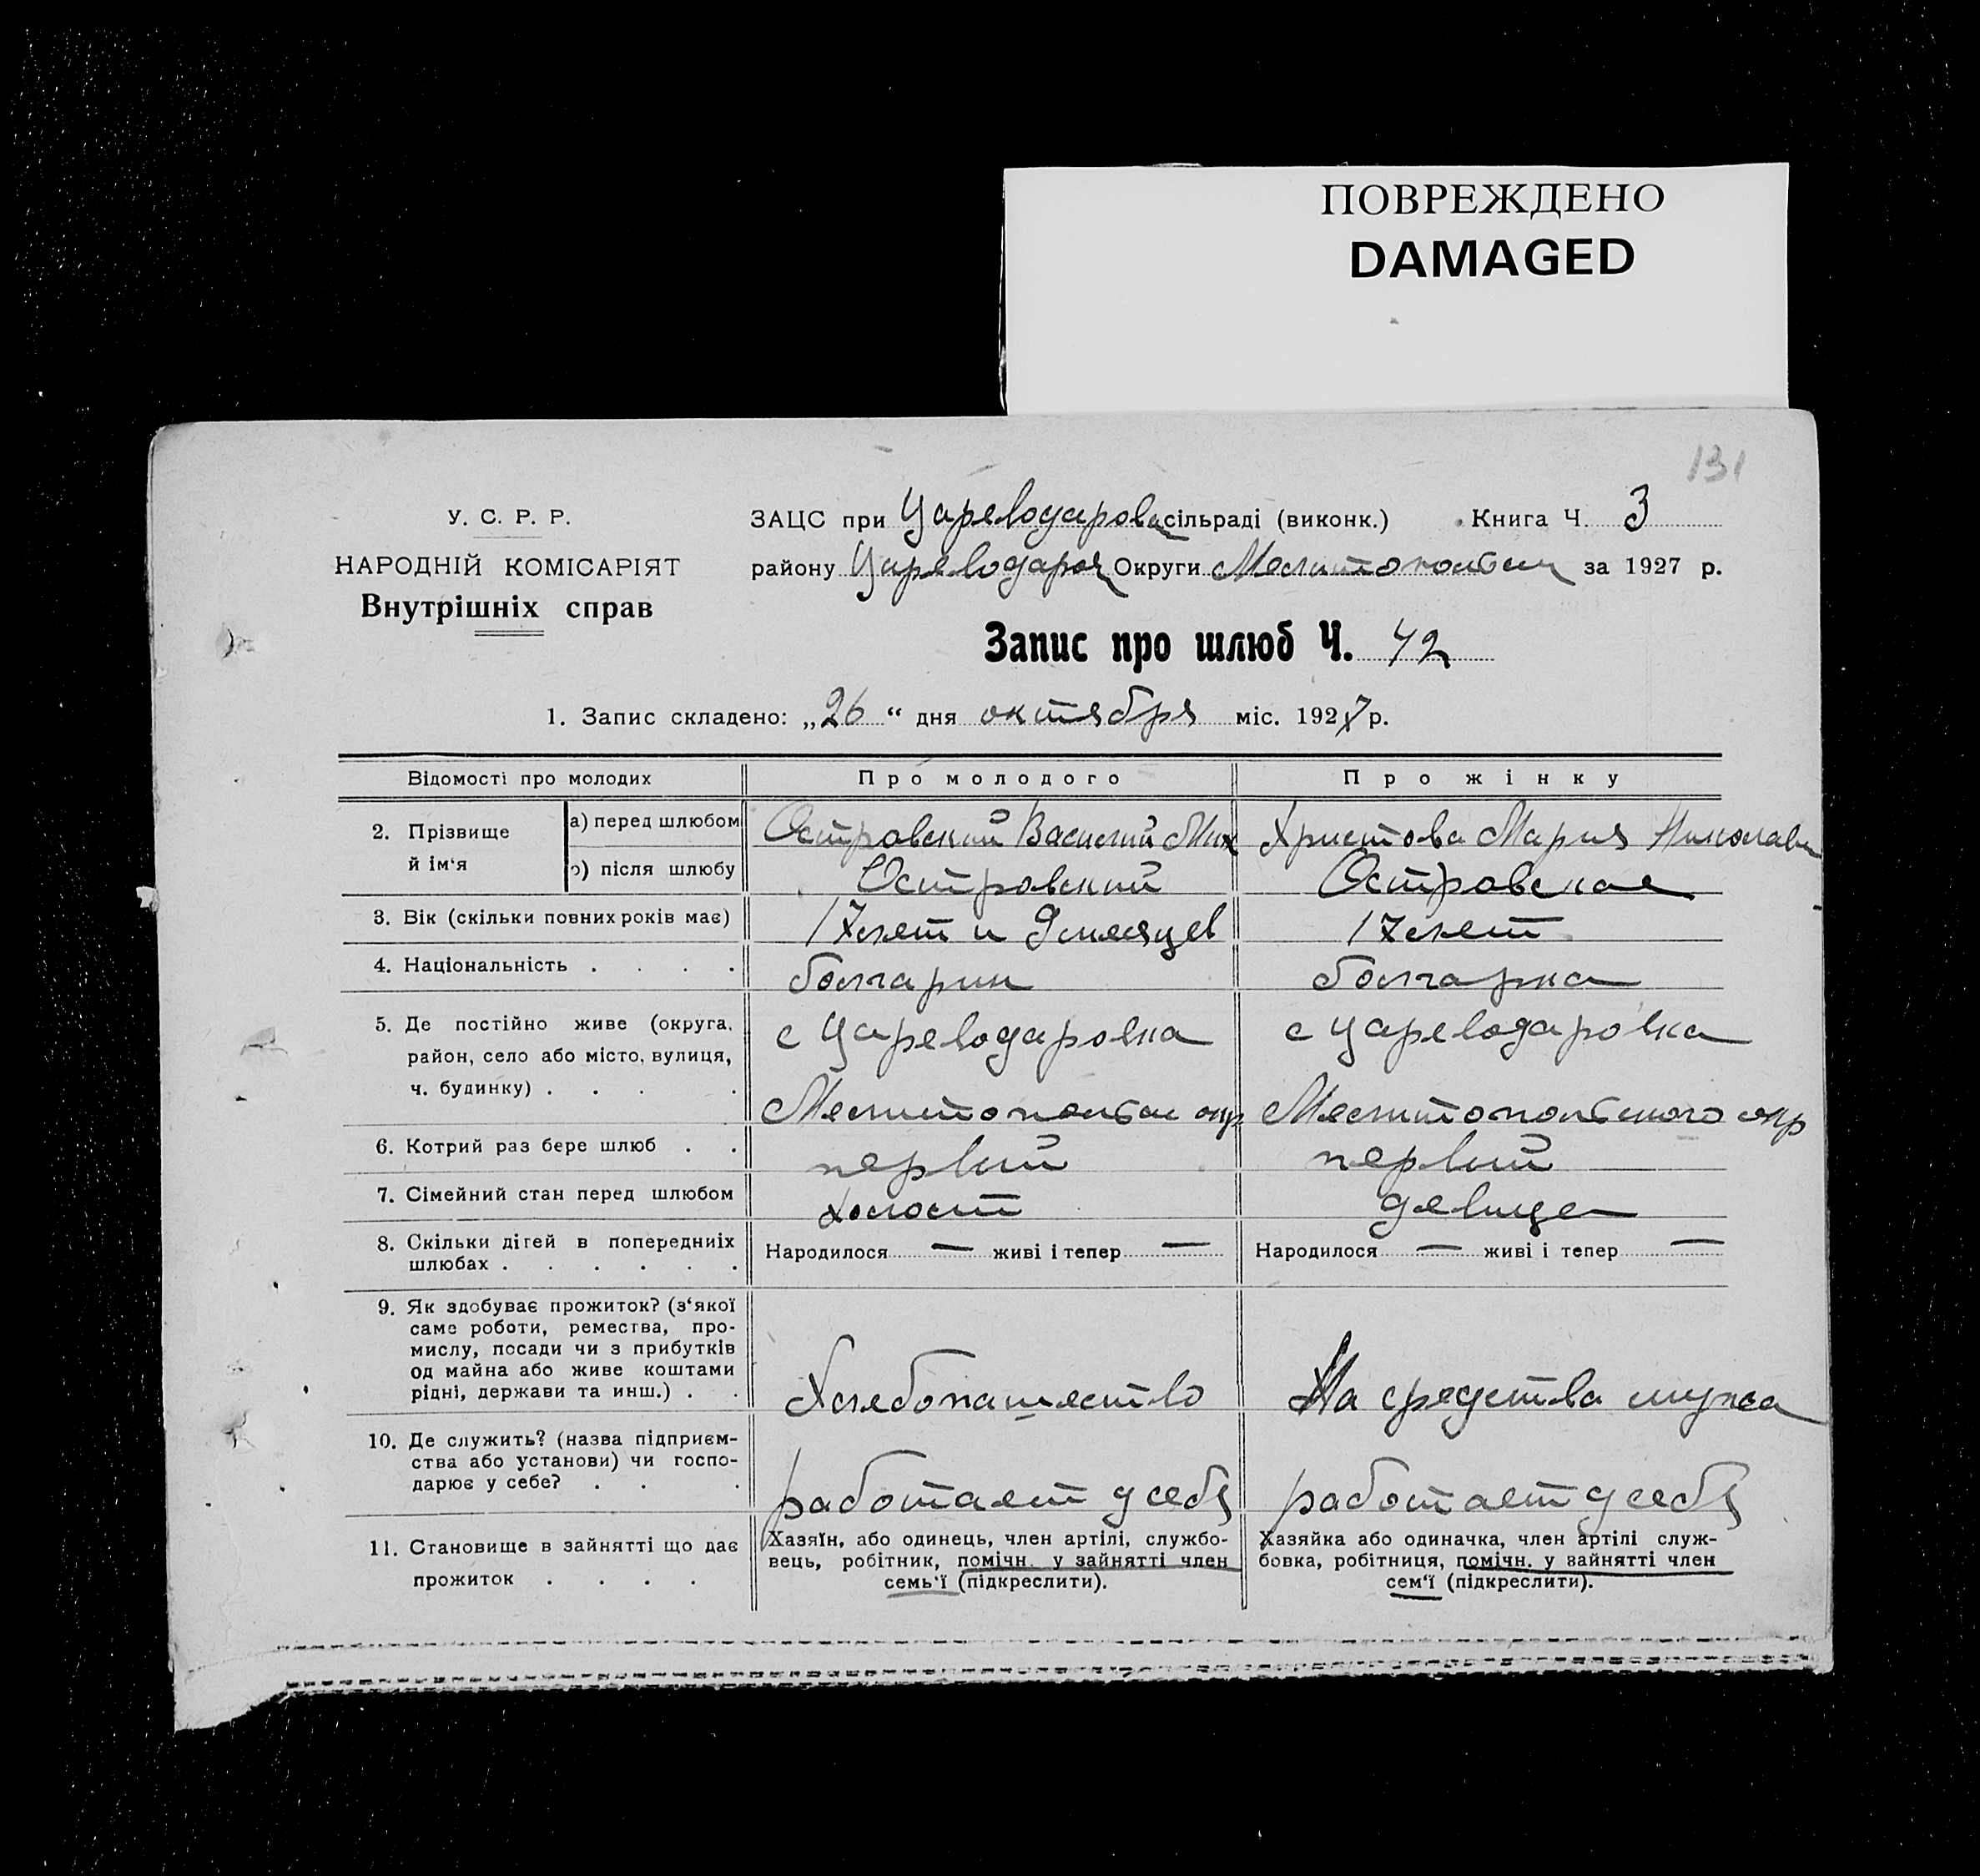 ПОВРЕЖДЕНО
DAMAGED
131
У. С. Р. Р.
НАРОДНІЙ КОМІСАРІЯТ
Внутрішніх справ
ЗАЦС при Цареводаровс сільраді (виконк.) Книга Ч. 3
району Цареводаров Округи Мелитопольск за 1927 р.
Запис про шлюб Ч. 42
1. Запис складено: „26“ дня октября міс. 1927 р.
Відомості про молодих Про молодого Про жінку
2. Прізвище й ім‘я
а) перед шлюбом Островский Василий Мих Христова Мария Николаевн
б) після шлюбу Островский Островская
3. Вік (скільки повних років має) 17 лет и 9 месяцев 17 лет
4. Національність . . . . болгарин болгарка
5. Де постійно живе (округа, район, село або місто, вулиця, ч. будинку) . . . .
с Цареводаровка с Цареводаровка
Мелитопольск окр Мелитопольского окр
6. Котрий раз бере шлюб . . первий первий
7. Сімейний стан перед шлюбом холост девица
8. Скільки дітей в попередниіх шлюбах . . . . . .
Народилося — живі і тепер — Народилося — живі і тепер —
9. Як здобуває прожиток? (з‘якої
саме роботи, ремества, про-
мислу, посади чи з прибутків
од майна або живе коштами
рідні, держави та инш.) . . Хлебопашество На средства мужа
10. Де служить? (назва підприєм-
ства або установи) чи госпо-
дарює у себе? . . . работает у себя работает у себя
11. Становище в зайнятті що дає
прожиток . . . .
Хазяїн, або одинець, член артілі, службо-
вець, робітник, помічн. у зайнятті член
семь‘ї (підкреслити).
Хазяйка або одиначка, член артілі служ-
бовка, робітниця, помічн. у зайнятті член
сем‘ї (підкреслити).